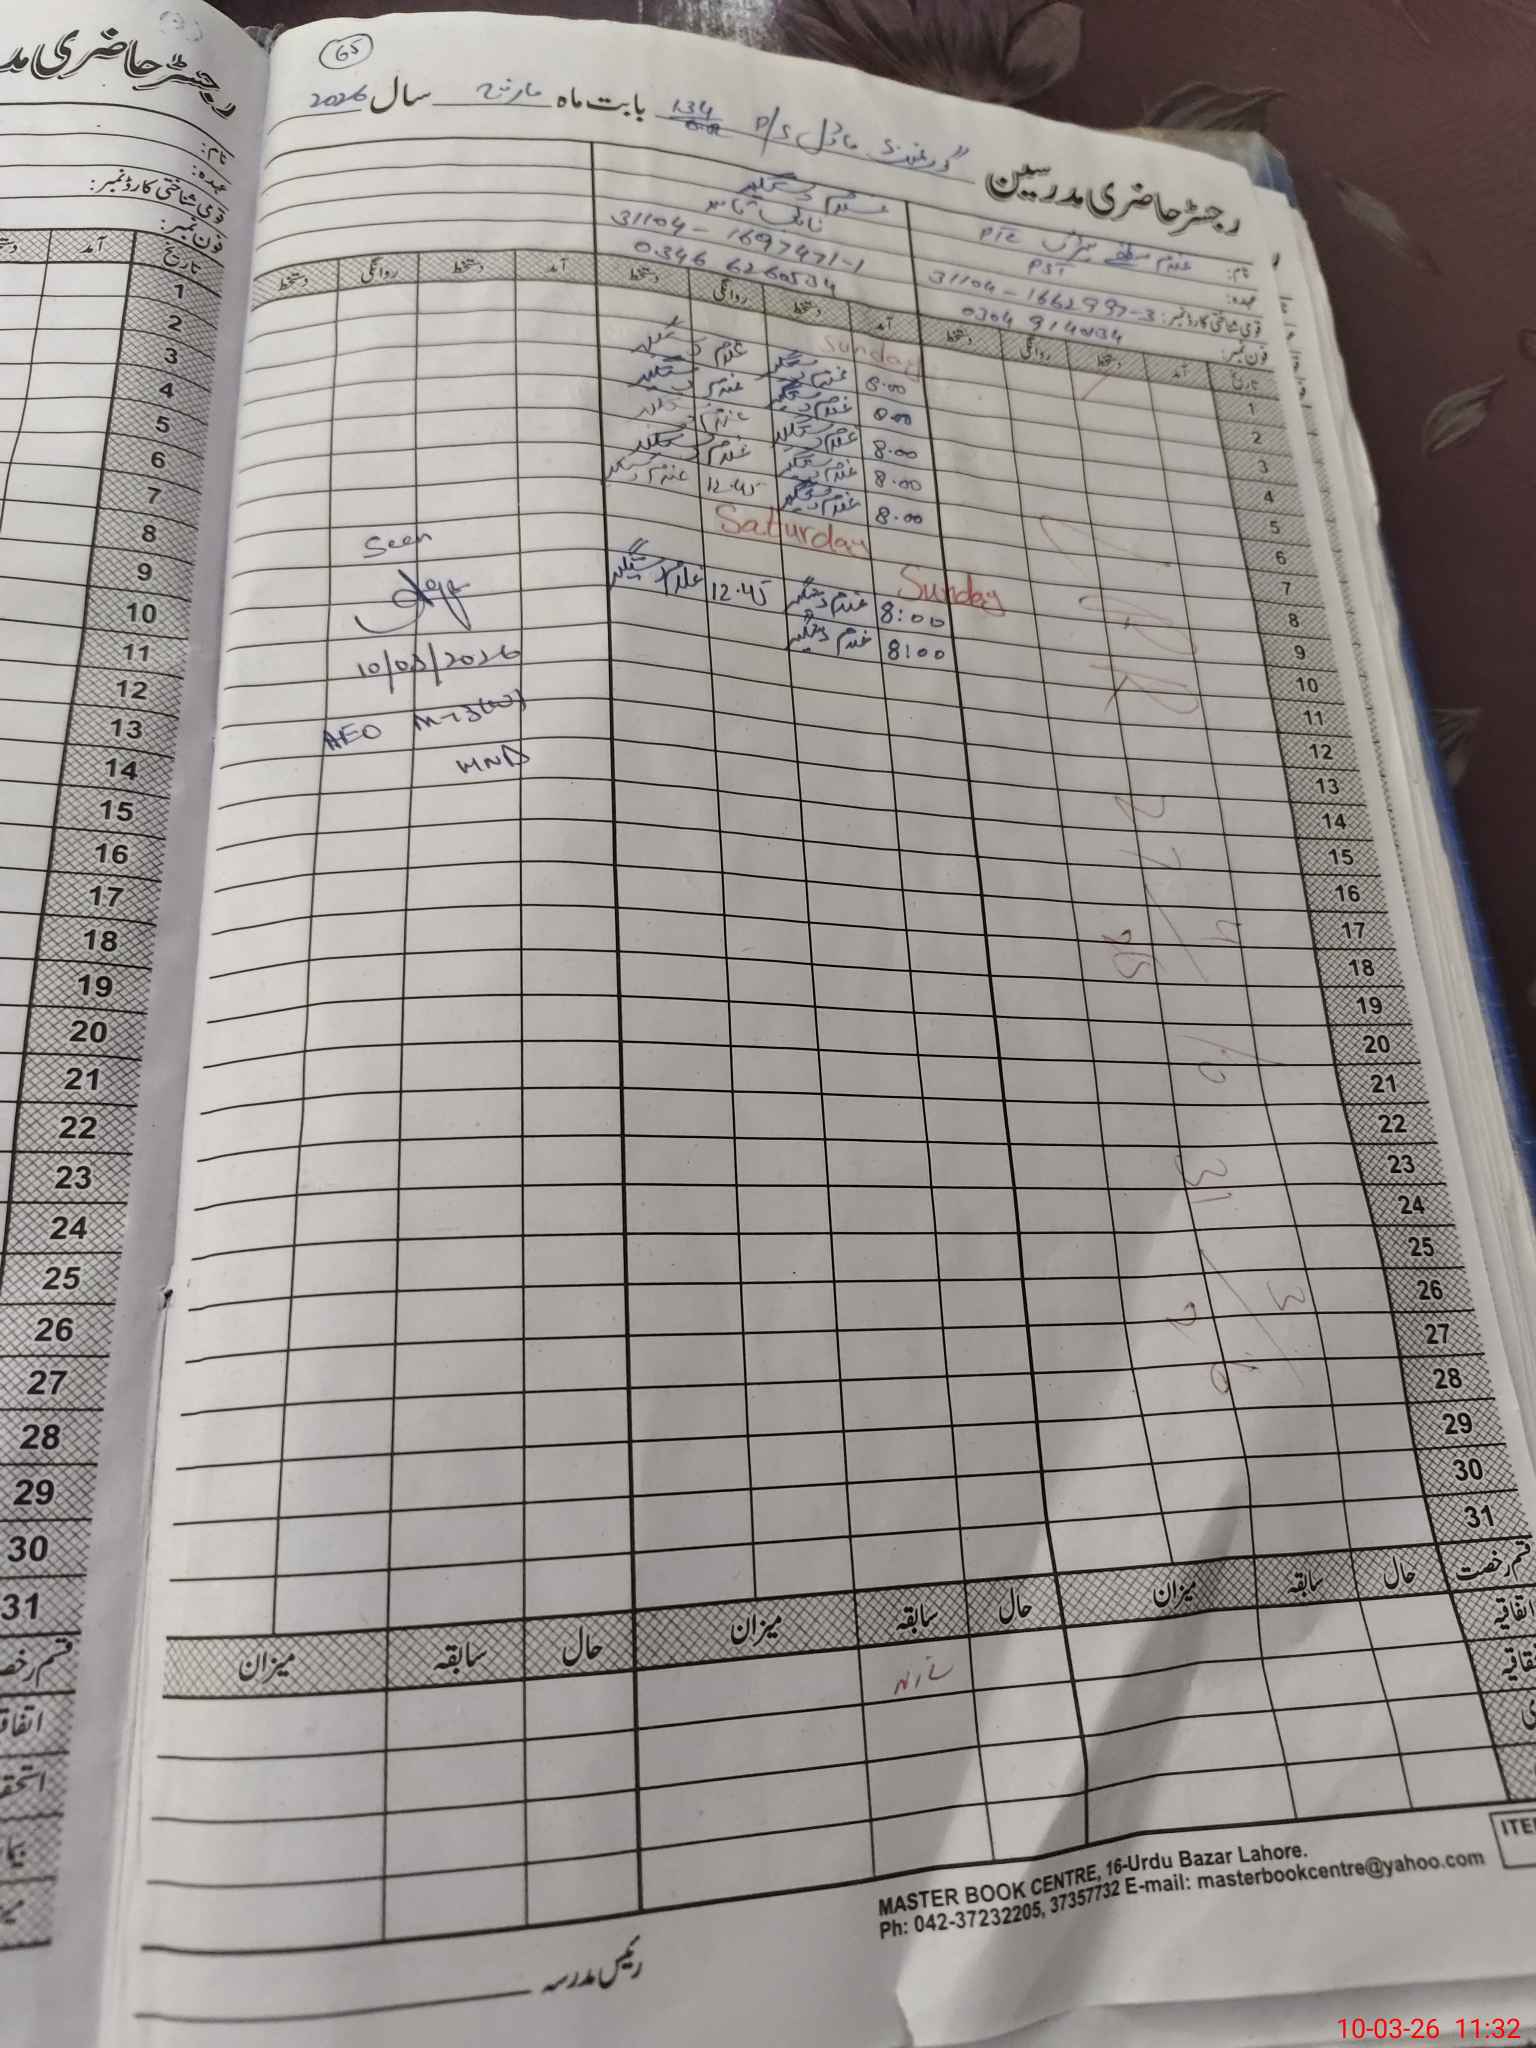 65
رجسٹر حاضری مدرسین گورنمنٹ ماڈل P/S 134 بابت ماہ مارچ سال 2026
نام: غلام
غلام دستگیر
عہدہ: PST
نائب قاصد
قومی شناختی کارڈ نمبر: 31104-1662997-3
31104-1697471-1
فون نمبر:
0346 6260534
تاریخ آمد دستخط روانگی دستخط آمد دستخط روانگی دستخط آمد دستخط روانگی دستخط
1 Sunday
2 8.00 غلام دستگیر غلام دستگیر
3 8.00 غلام دستگیر غلام دستگیر
4 8.00 غلام دستگیر غلام دستگیر
5 8.00 غلام دستگیر غلام دستگیر
6 8.00 غلام دستگیر 12.45 غلام دستگیر
7 Saturday
8 Sunday
9 8:00 غلام دستگیر 12.45 غلام دستگیر
10 8:00 غلام دستگیر
11
12
13
14
15
16
17
18
19
20
21
22
23
24
25
26
27
28
29
30
31
Seen
10/03/2026
AEO
HND
قسم رخصت حال سابقہ میزان حال سابقہ میزان حال سابقہ میزان
اتفاقیہ
Nil
رئیس مدرسہ
MASTER BOOK CENTRE, 16-Urdu Bazar Lahore.
Ph: 042-37232205, 37357732 E-mail: masterbookcentre@yahoo.com
رجسٹر حاضری
نام:
عہدہ:
قومی شناختی کارڈ نمبر:
فون نمبر:
تاریخ آمد
1
2
3
4
5
6
7
8
9
10
11
12
13
14
15
16
17
18
19
20
21
22
23
24
25
26
27
28
29
30
31
10-03-26 11:32